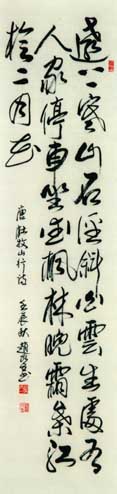 遠上寒山石徑斜白雲生處有
人家停車坐愛楓林晚霜葉紅
於二月花
唐杜牧山行詩
壬辰秋趙書